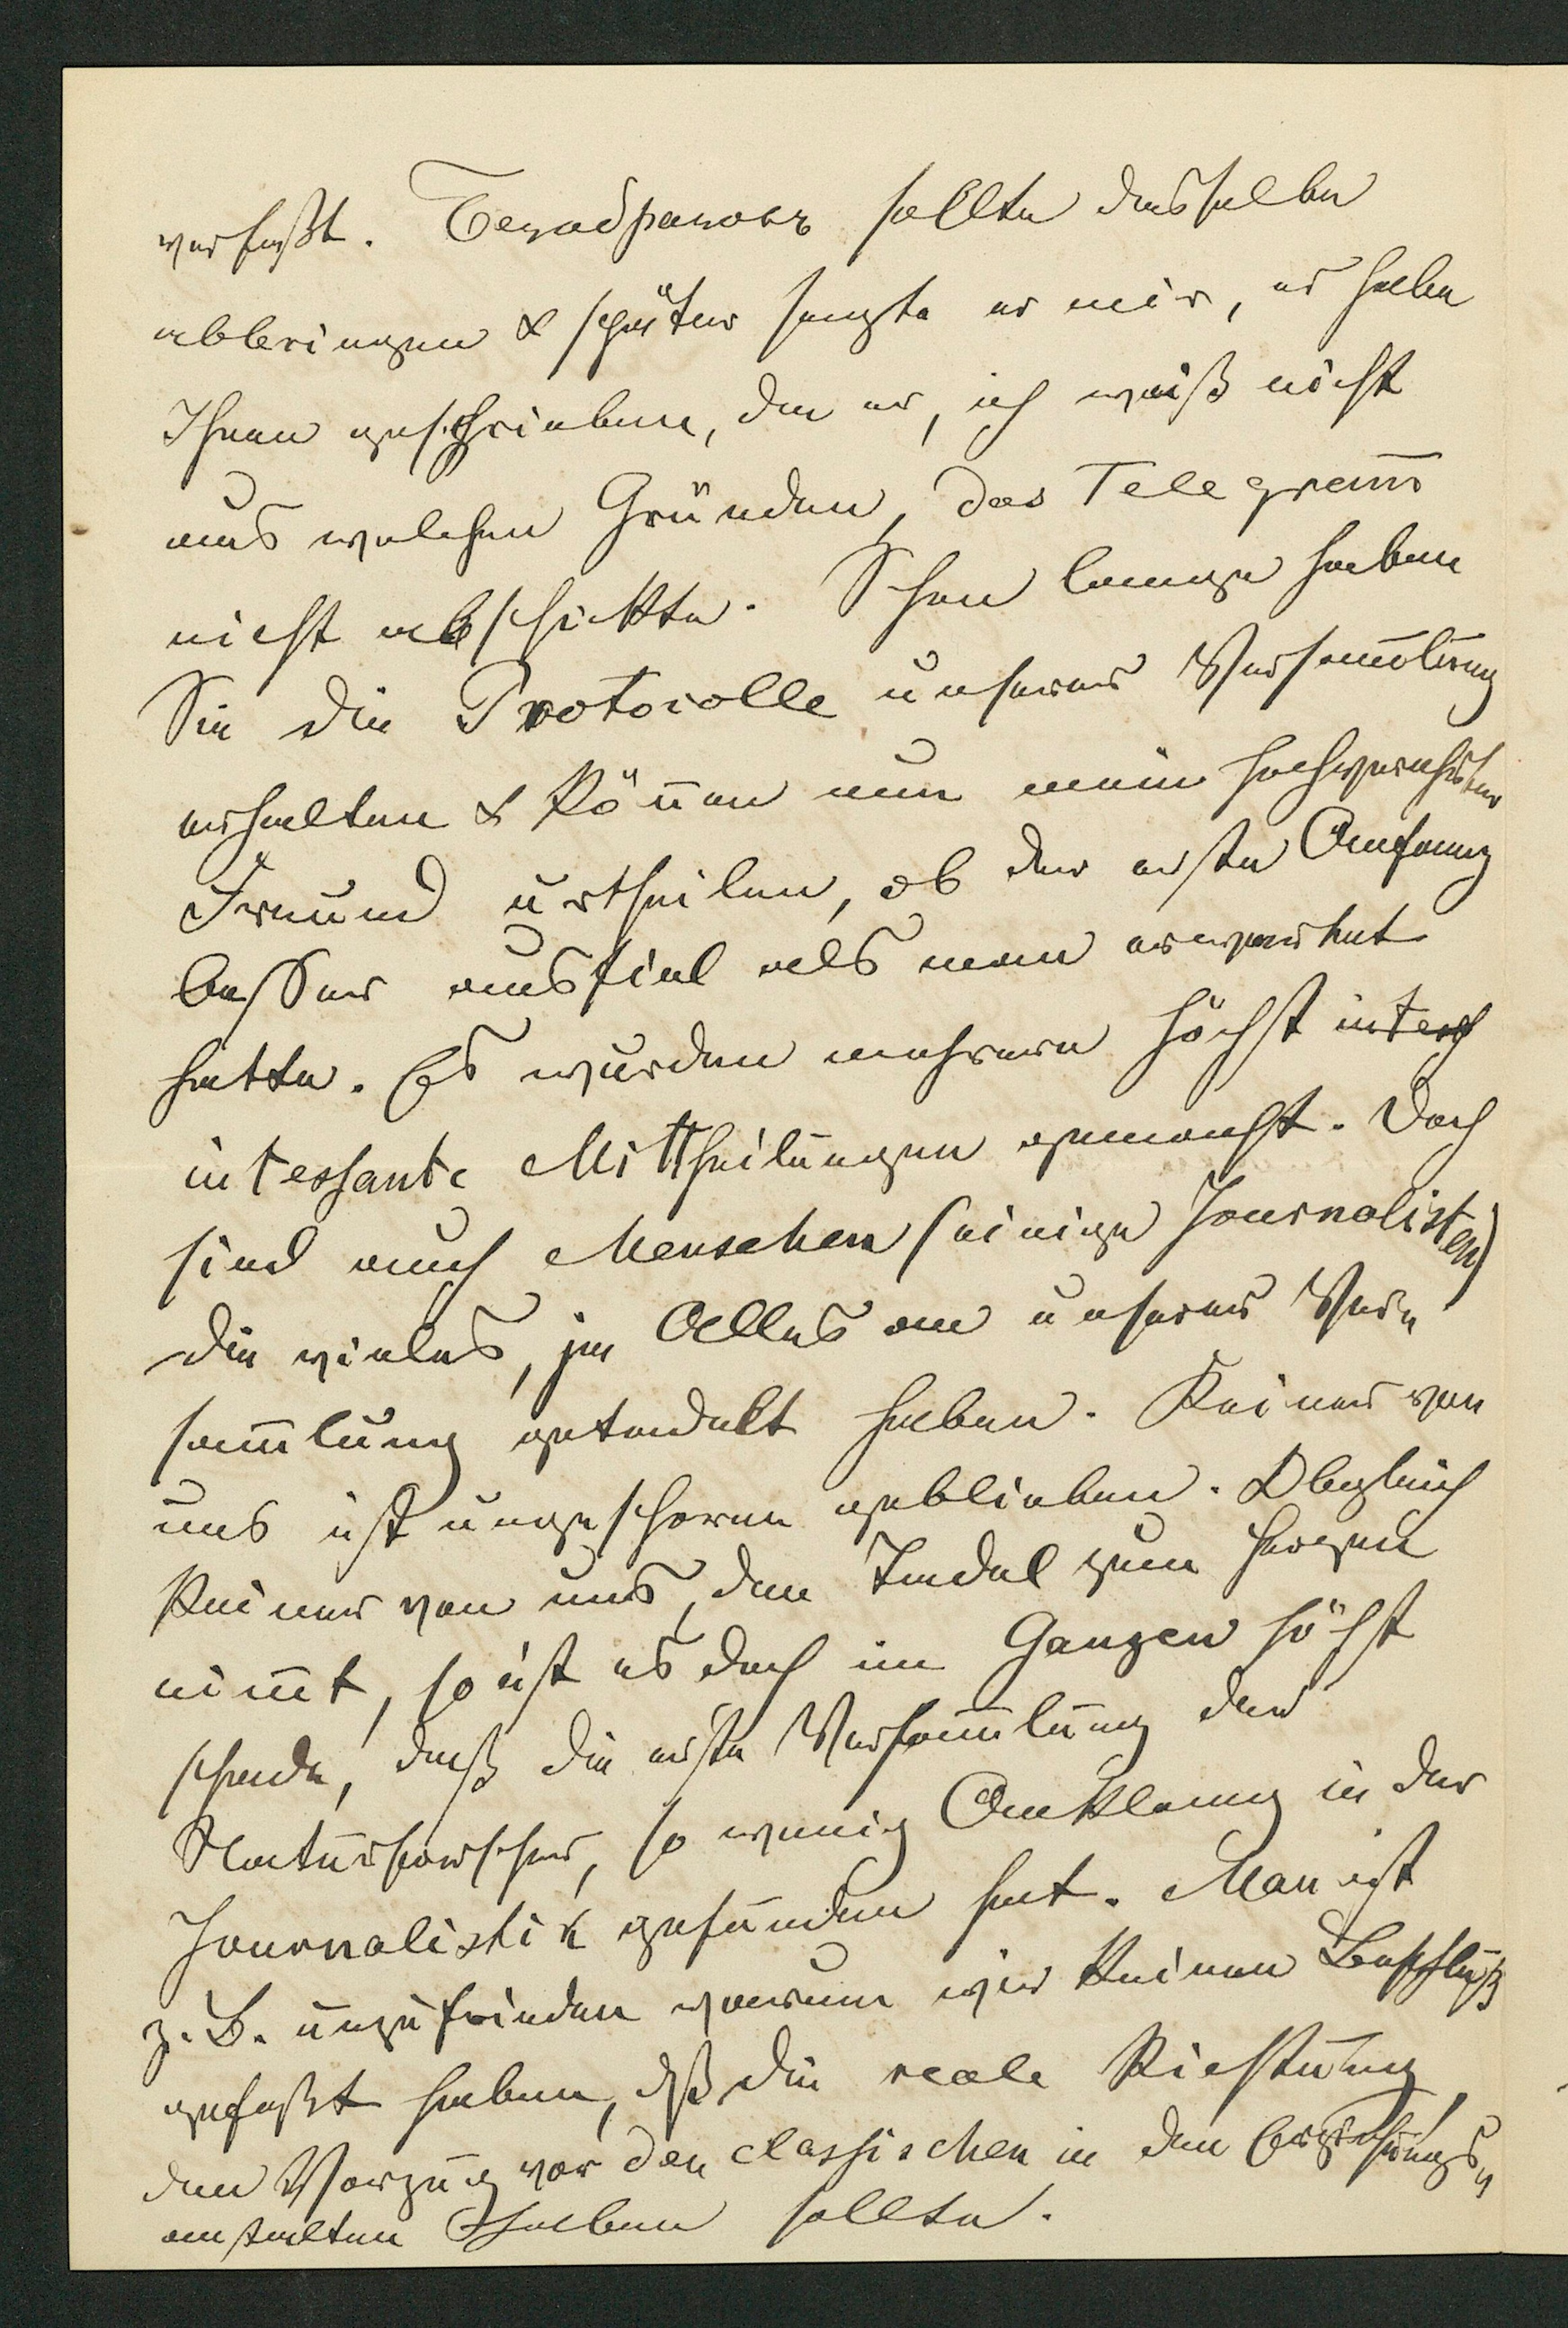 verfaßt. Безобразовъ sollte dasselbe
abbringen & später sagte er mir, er habe
Ihnen geschrieben, da er, ich weiß nicht
aus welchen Gründen, das Telegram̄
nicht abschikte. Schon lange haben
Sie die Protocolle unserer Versam̄lung
erhalten & kön̄en nun mein hochverehrter
Freund urtheilen, ob der erste Anfang
besser ausfiel als man erwartet
hatte. Es wurden mehrere höchst
intessante Mittheilungen gemacht. Doch
sind auch Menschen (einige Journalisten)
die vieles, ja Alles an unserer Ver-
sam̄lung getadelt haben. Keiner von
uns ist ungeschoren geblieben. Obgleich
Keiner von uns, den Tadel zum Herzen
nim̄t, so ist es doch im Ganzen höchst
schade, daß die erste Versam̄lung der
Naturforscher, so wenig Anklang in der
Journalistik gefunden hat. Man ist
z. B. unzufrieden warum wir keinen Beschluß
gefaßt haben, dß die reale Richtung,
den Vorzug vor den classischen in den Erziehungs-
anstalten haben sollte.